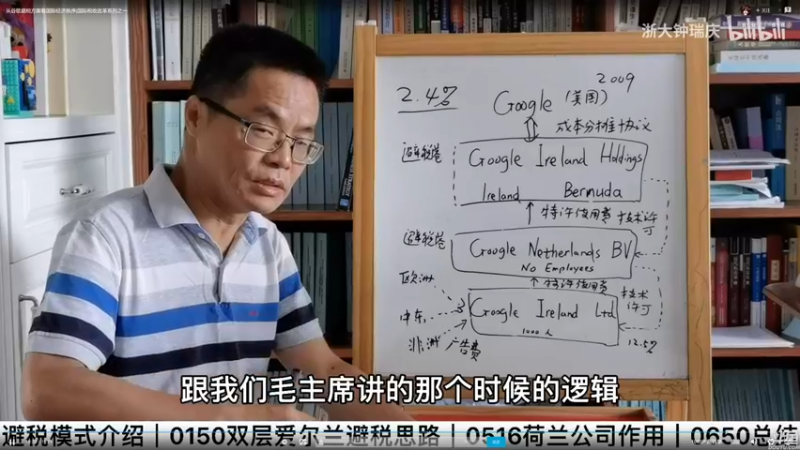 浙大钟瑞庆 bilibili
2.4%
2009
Google (美国)
成本分摊协议
避税港
Google Ireland Holdings
Ireland Bermuda
特许使用费
技术许可
避税港
Google Netherlands BV
No Employees
特许使用费
技术许可
欧洲
中东
非洲
广告费
Google Ireland Ltd
1000人
12.5%
跟我们毛主席讲的那个时候的逻辑
避税模式介绍｜0150双层爱尔兰避税思路｜0516荷兰公司作用｜0650总结